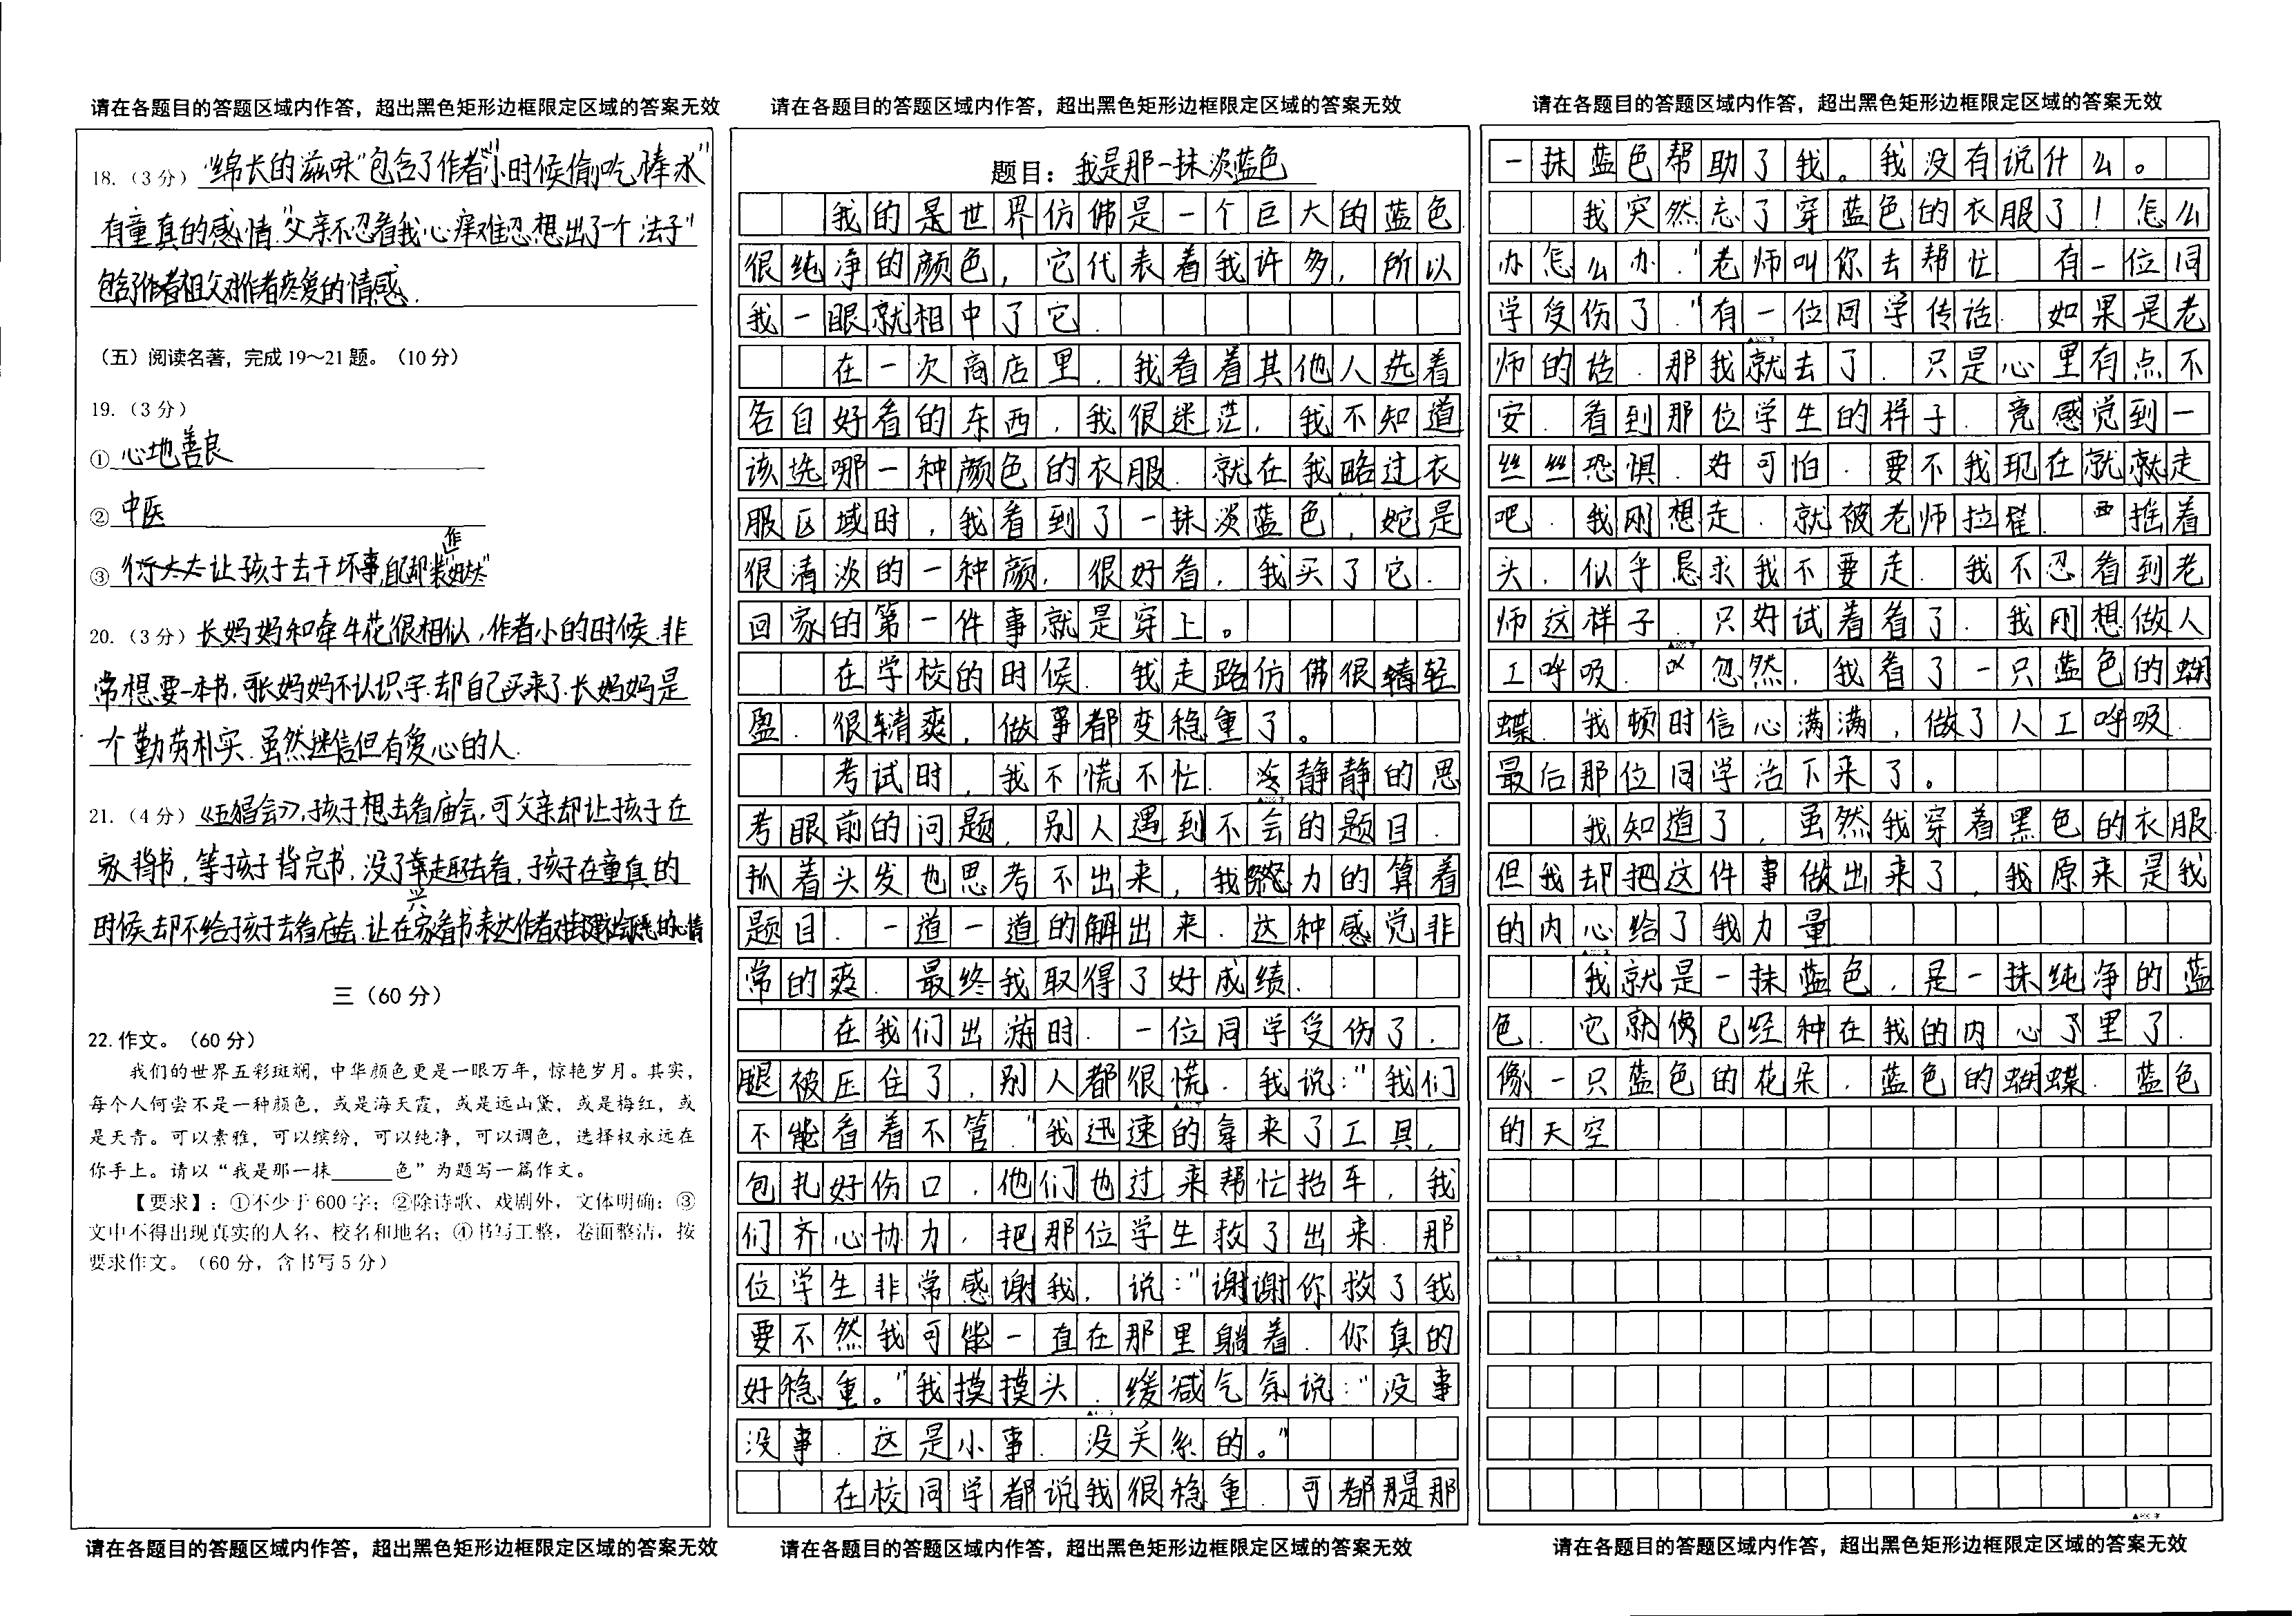 请在各题目的答题区域内作答，超出黑色矩形边框限定区域的答案无效
18.（3分）"绵长的滋味"包含了作者"小时候偷吃棒冰"
有童真的感情."父亲不忍看我心痒难忍.想出了一个法子"
包含了作者祖父对作者疼爱的情感.
（五）阅读名著，完成19～21题。（10分）
19.（3分）
① 心地善良
② 中医
③ "衍太太让孩子去干坏事,自己却装作
20.（3分）长妈妈和牵牛花很相似,作者小的时候.非
常想要一本书,可长妈妈不认识字.却自己买来了.长妈妈是
一个勤劳朴实.虽然迷信但有爱心的人.
21.（4分）《五猖会》,孩子想去看庙会,可父亲却让孩子在
家背书,等孩子背完书,没了兴趣去看,孩子在童真的
时候却不给孩子去看庙会.让在家看书表达作者对封建的心情
三（60分）
22.作文。（60分）
我们的世界五彩斑斓，中华颜色更是一眼万年，惊艳岁月。其实，
每个人何尝不是一种颜色，或是海天霞，或是远山黛，或是梅红，或
是天青。可以素雅，可以缤纷，可以纯净，可以调色，选择权永远在
你手上。请以“我是那一抹______色”为题写一篇作文。
【要求】：①不少于600字；②除诗歌、戏剧外，文体明确；③
文中不得出现真实的人名、校名和地名；④书写工整，卷面整洁，按
要求作文。（60分，含书写5分）
请在各题目的答题区域内作答，超出黑色矩形边框限定区域的答案无效
请在各题目的答题区域内作答，超出黑色矩形边框限定区域的答案无效
题目：我是那一抹淡蓝色
我的是世界仿佛是一个巨大的蓝色
很纯净的颜色,它代表着我许多,所以
我一眼就相中了它.
在一次商店里,我看着其他人选着
各自好看的东西,我很迷茫,我不知道
该选哪一种颜色的衣服.就在我略过衣
服区域时,我看到了一抹淡蓝色,蛇是
很清淡的一种颜,很好看,我买了它.
回家的第一件事就是穿上。
在学校的时候.我走路仿佛很轻
盈.很轻爽,做事都变稳重了。
考试时,我不慌不忙.冷静静的思
考眼前的问题,别人遇到不会的题目.
抓着头发也思考不出来,我努力的算着
题目.一道一道的解出来.这种感觉非
常的爽.最终我取得了好成绩.
在我们出游时.一位同学受伤了,
腿被压住了,别人都很慌.我说:"我们
不能看着不管."我迅速的拿来了工具,
包扎好伤口.他们也过来帮忙抬车,我
们齐心协力,把那位学生救了出来.那
位学生非常感谢我,说:"谢谢你救了我
要不然我可能一直在那里躺着.你真的
好稳重。"我摸摸头.缓减气氛说:"没事
没事.这是小事.没关系的。"
在校同学都说我很稳重.可都是那
请在各题目的答题区域内作答，超出黑色矩形边框限定区域的答案无效
请在各题目的答题区域内作答，超出黑色矩形边框限定区域的答案无效
一抹蓝色帮助了我。我没有说什么。
我突然忘了穿蓝色的衣服了!怎么
办怎么办."老师叫你去帮忙.有一位同
学受伤了."有一位同学传话.如果是老
师的话.那我就去了.只是心里有点不
安.看到那位学生的样子.竟感觉到一
丝丝恐惧.好可怕.要不我现在就走
吧.我刚想走.就被老师拉住.摇着
头,似乎恳求我不要走.我不忍看到老
师这样子.只好试着看了.我刚想做人
工呼吸.忽然,我看了一只蓝色的蝴
蝶.我顿时信心满满,做了人工呼吸.
最后那位同学活下来了。
我知道了,虽然我穿着黑色的衣服
但我却把这件事做出来了,我原来是我
的内心给了我力量
我就是一抹蓝色,是一抹纯净的蓝
色.它就像已经种在我的内心了里了.
像一只蓝色的花朵.蓝色的蝴蝶.蓝色
的天空
请在各题目的答题区域内作答，超出黑色矩形边框限定区域的答案无效